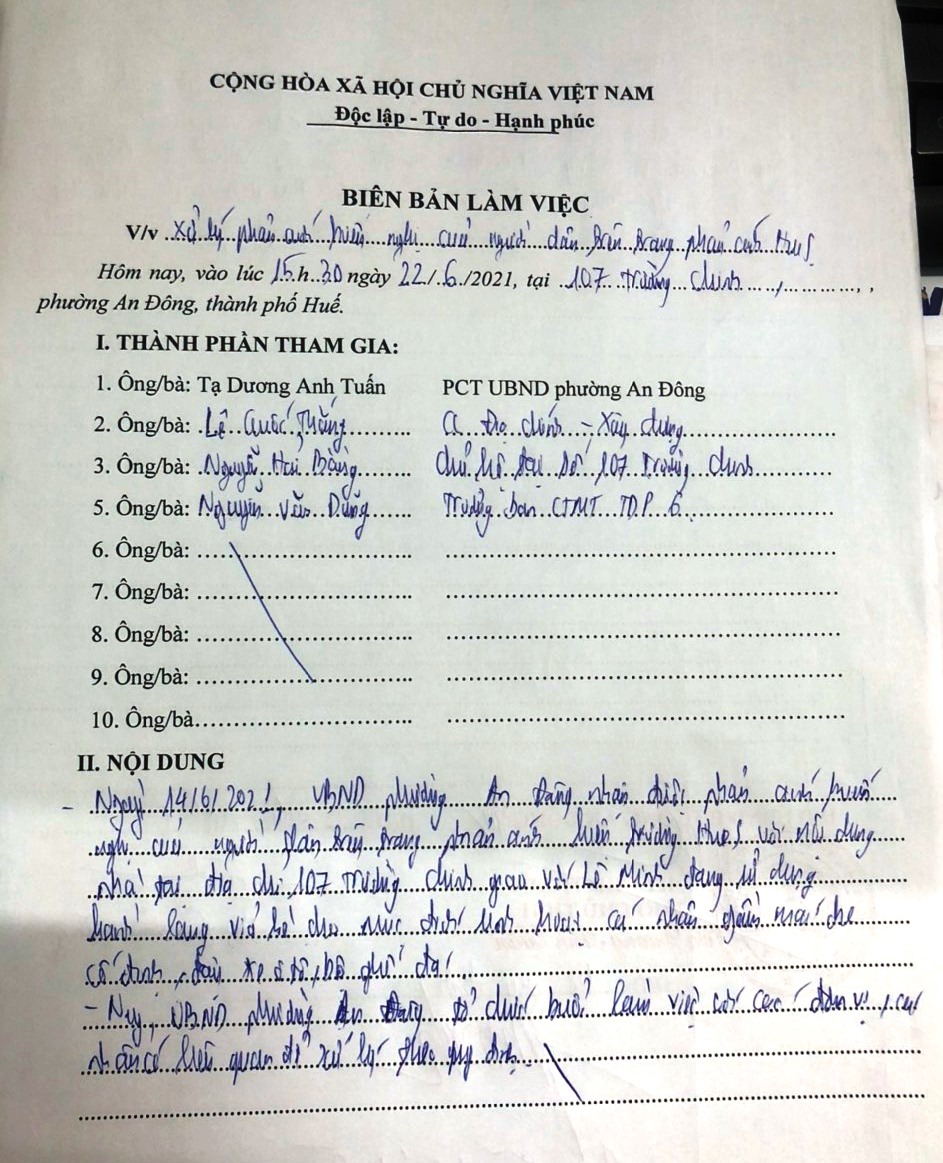 CỘNG HÒA XÃ HỘI CHỦ NGHĨA VIỆT NAM
Độc lập - Tự do - Hạnh phúc
BIÊN BẢN LÀM VIỆC
V/v xử lý phản ánh kiến nghị của người dân trên trang phản ánh HueS
Hôm nay, vào lúc 15h30 ngày 22/6/2021, tại 107 Trường Chinh, ,
phường An Đông, thành phố Huế.
I. THÀNH PHẦN THAM GIA:
1. Ông/bà: Tạ Dương Anh Tuấn PCT UBND phường An Đông
2. Ông/bà: Lê Quốc Thắng địa chính - Xây dựng
3. Ông/bà: Nguyễn Hải chủ hộ tại số 107 Trường Chinh
5. Ông/bà: Nguyễn Văn Dũng Trưởng ban CTMT TDP 6
6. Ông/bà:
7. Ông/bà:
8. Ông/bà:
9. Ông/bà:
10. Ông/bà
II. NỘI DUNG
- Ngày 14/6/2021, UBND phường An Đông nhận được phản ánh kiến
nghị của người dân trên trang phản ánh hiện trường HueS với nội dung
nhà tại địa chỉ 107 Trường Chinh giao với Lê Minh đang sử dụng
hành lang vỉa hè cho mục đích sinh hoạt cá nhân gồm mái che
cố định, đậu xe ô tô, bộ ghế đá.
- Nay, UBND phường An Đông tổ chức buổi làm việc với các đơn vị, cá
nhân có liên quan để xử lý theo quy định.